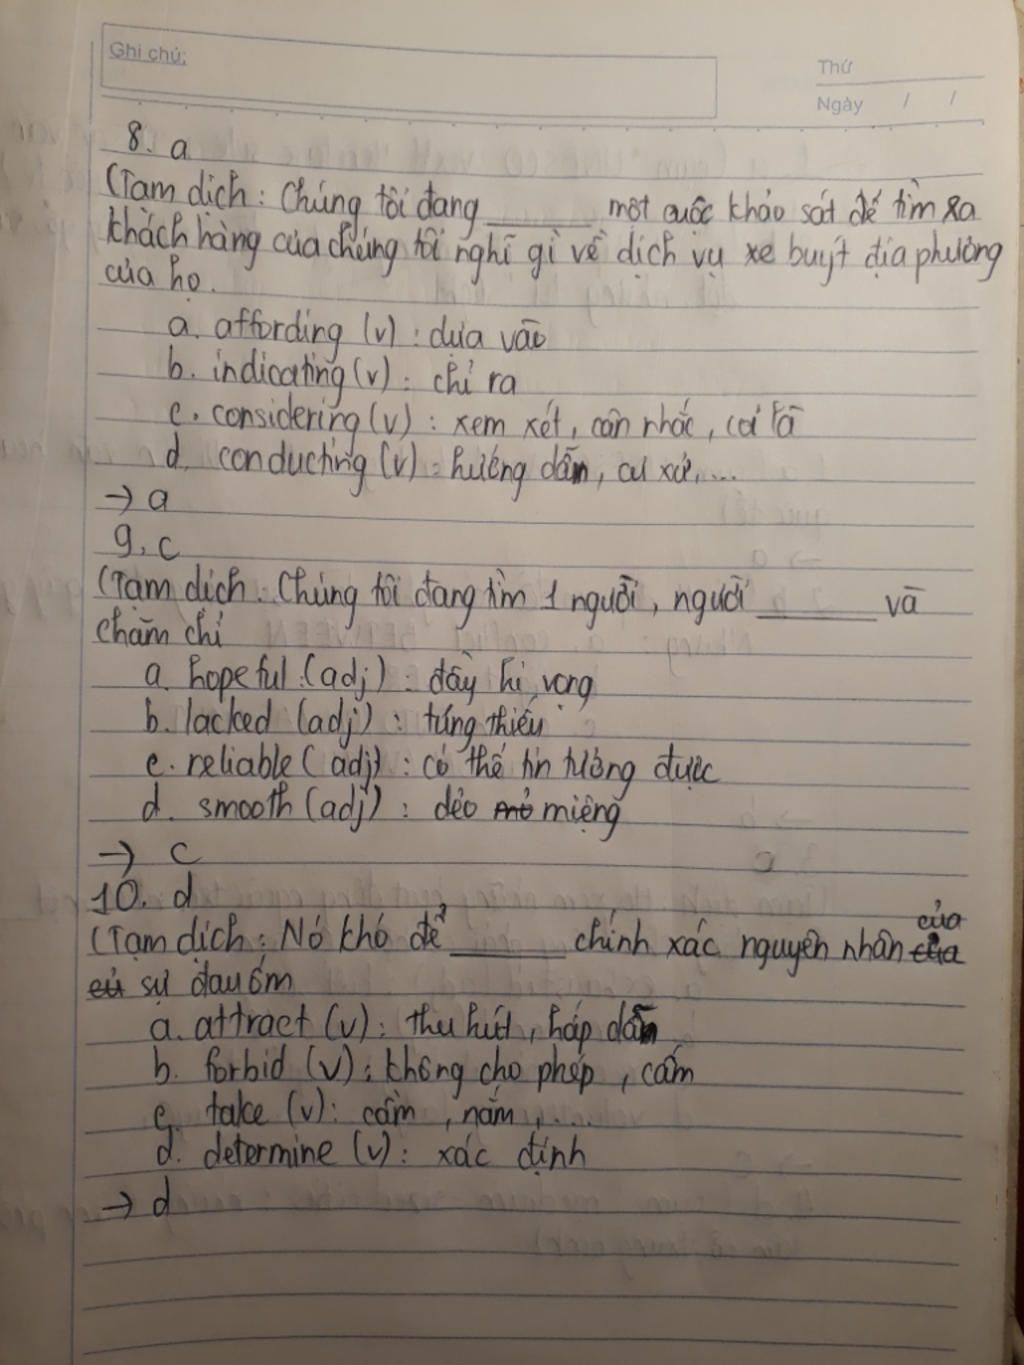 Ghi chú:
Thứ
Ngày / /
8. a
(Tạm dịch: Chúng tôi đang ______ một cuộc khảo sát để tìm ra
khách hàng của chúng tôi nghĩ gì về dịch vụ xe buýt địa phương
của họ.
a. affording (v): dựa vào
b. indicating (v): chỉ ra
c. considering (v): xem xét, cân nhắc, coi là
d. conducting (v): hướng dẫn, cư xử,...
→ a
9. c
(Tạm dịch: Chúng tôi đang tìm 1 người, người ______ và
chăm chỉ
a. hopeful (adj): đầy hi vọng
b. lacked (adj): túng thiếu
c. reliable (adj): có thể tin tưởng được
d. smooth (adj): dẻo miệng
→ c
10. d
(Tạm dịch: Nó khó để ______ chính xác nguyên nhân của
sự đau ốm
a. attract (v): thu hút, hấp dẫn
b. forbid (v): không cho phép, cấm
c. take (v): cầm, nắm,....
d. determine (v): xác định
→ d